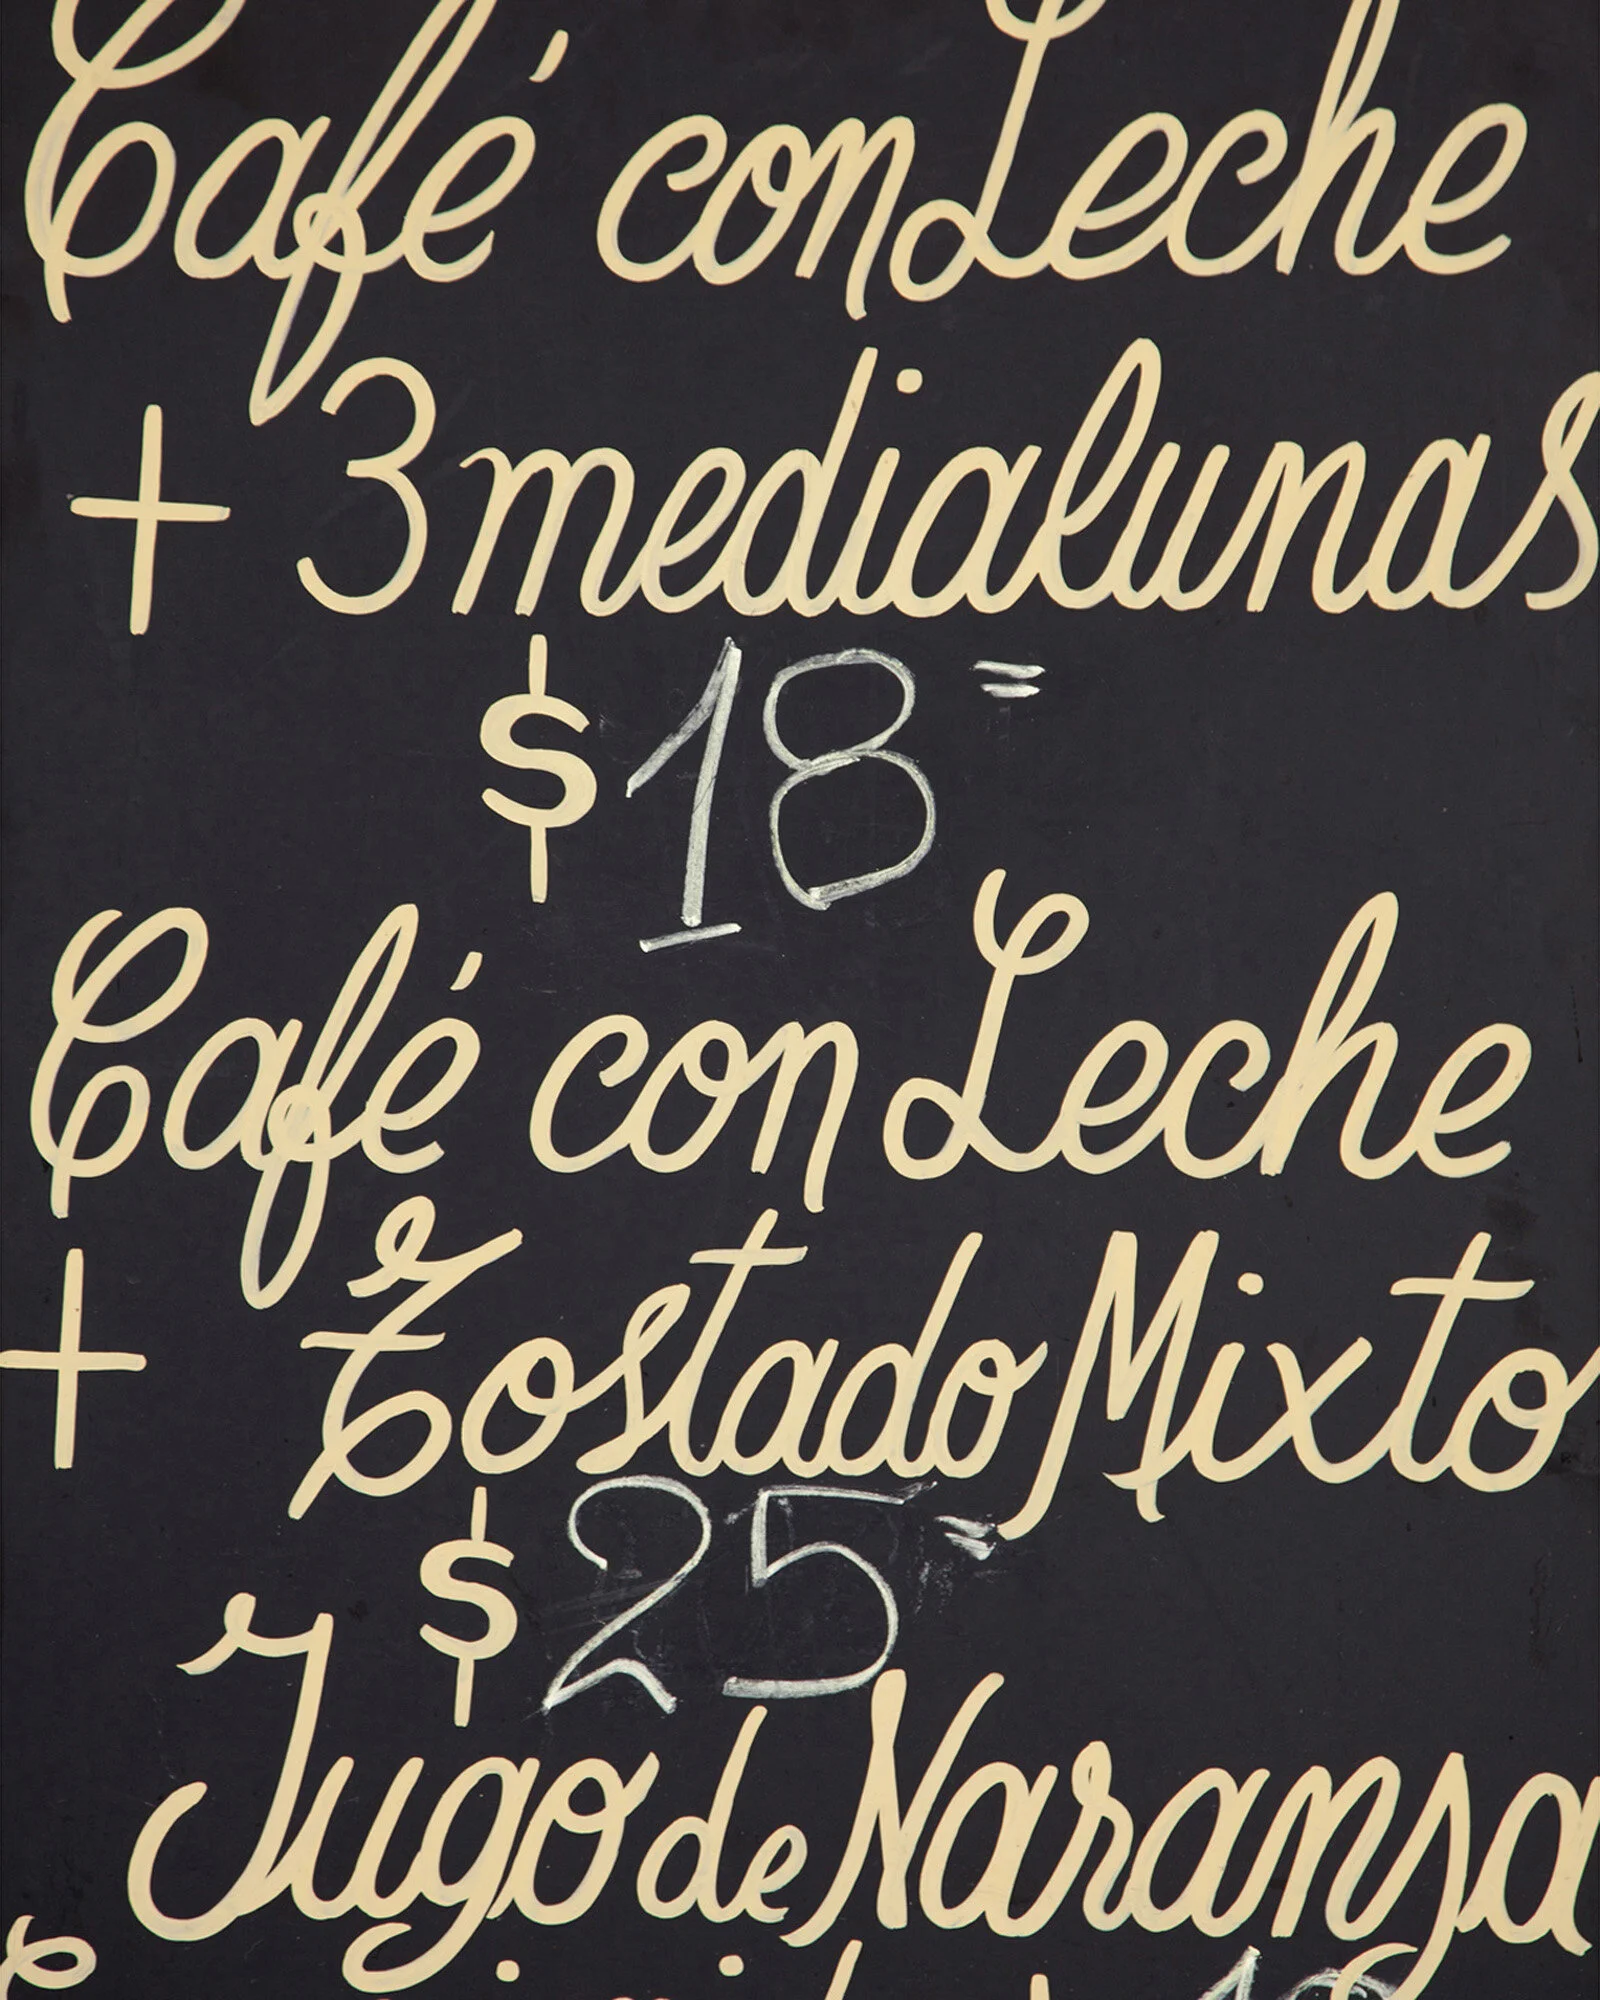 Café con Leche
+ 3 medialunas
$18=
Café con Leche
+ Tostado Mixto
$25=
Jugo de Naranja